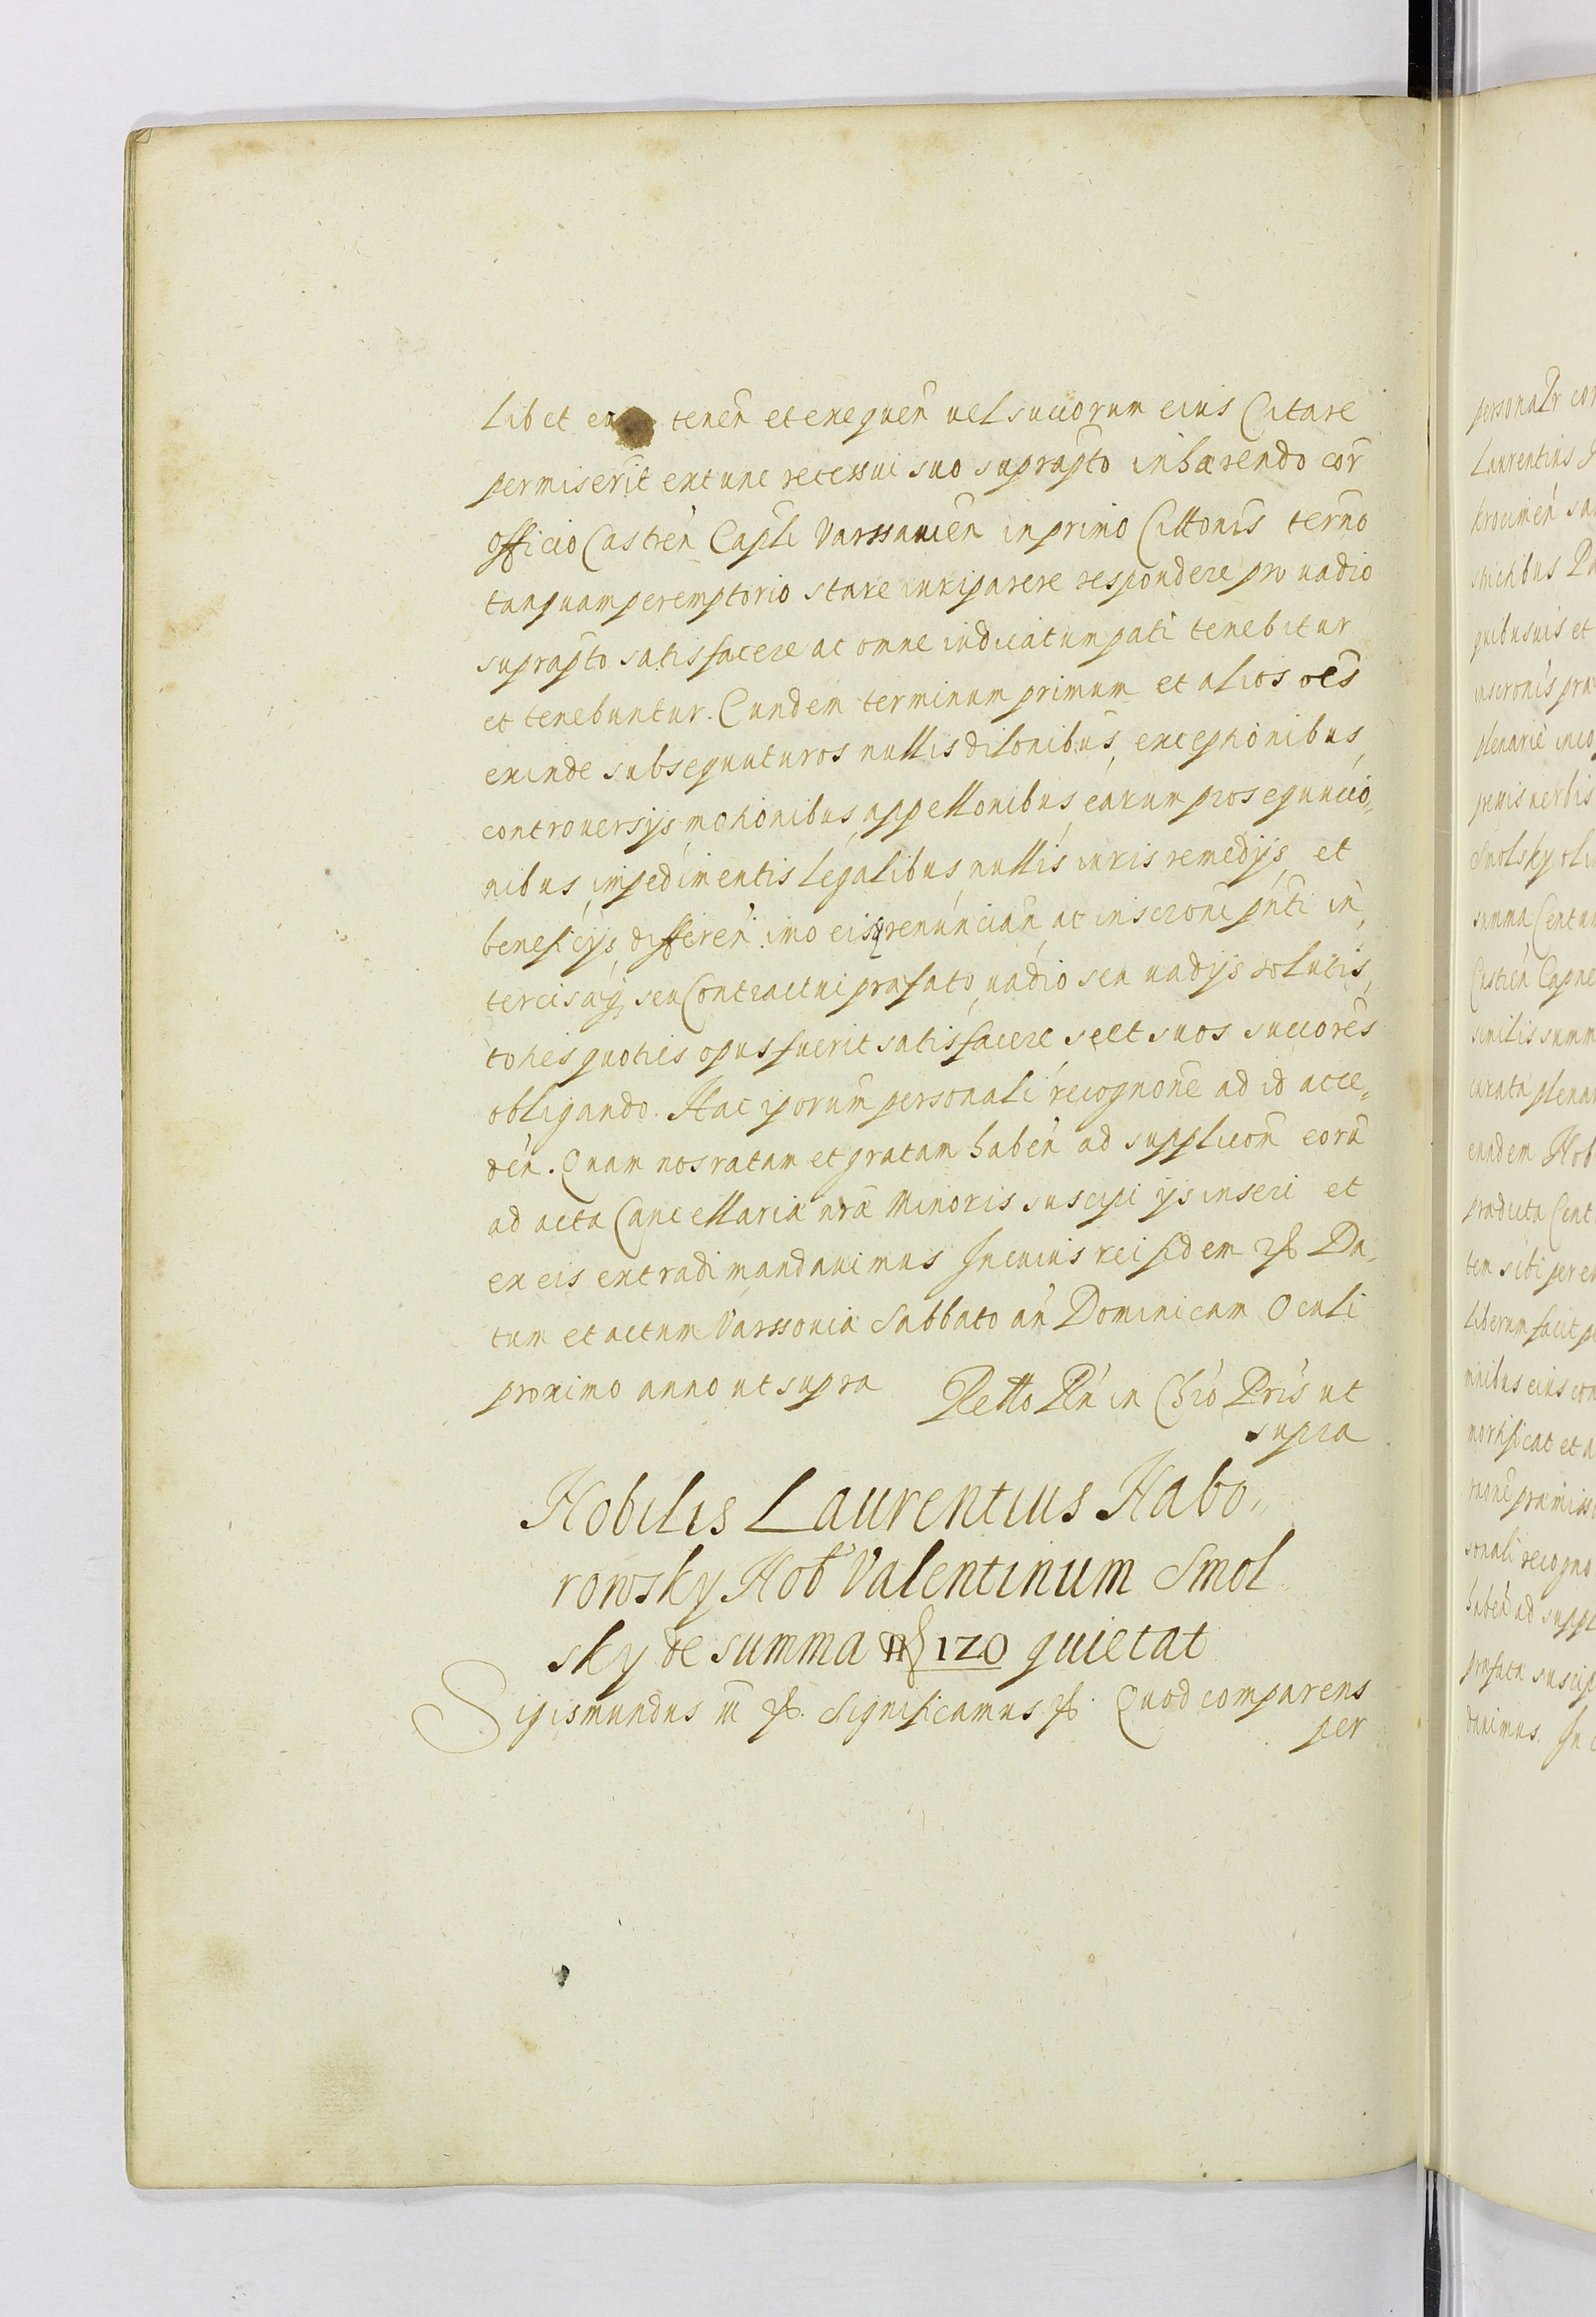 libet ex tenen̄ et exequen̄ uel succorum eius Citare
permiserit extunc recessui suo suprapt̄o inhærendo cor̄
officio Castren̄ Capl̄i Varssauien̄ in primo Cittonis̄ term̄o
tanquam peremptorio stare iuri parere respondere pro uadio
suprapt̄o satisfacere ac omne iudicatum pati tenebitur
et tenebuntur. Eundem terminum primum et alios oēs
exinde subsequuturos nullis dilonibus̄, exceptionibus,
controuersijs, motionibus, appellonibus, earum prosequucio„
nibus, impedimentis legalibus, nullis iuris remedijs, et
beneficijs, differen̄ imo eis renuncian̄, ac inscroni pn̄ti in„
tercisæq̨ seu Contractui præfato, uadio seu uadijs solutis,
toties quoties opus fuerit satisfacere se et suos succores̄
obligando. Hac ip̄orum personali recognone̅ ad id acce„
den̄. Quam nos ratam et gratam haben̄ ad supplicon̄ eorū
ad acta Cancellariæ nr̄æ Minoris suscipi ijs inseri et
ex eis extradi mandauimus In cuius rei fidem &c Da„
tum et actum Varssouiæ Sabbato an̄ Dominicam Oculi
proximo anno ut supra Retto Rn̄ in Chr̄o Pris̄ ut
supra
Nobilis Laurentius Nabo„
rowsky Nob̄ Valentinum Smol„
sky de summa 120 quietat
Sigismundus III &c. Significamus &c. Quod comparens
per
personalr̄ co
Laurentius
krocimen̄ sa
stichibus Pa
quibusuis et
inscronis̄ præ
plenarie inco
preuis uerbis
Smolsky oli
summa Centum
Castren̄ Capne
similis summ
curata plenar
eundem Nob
prædicta Cent
tem sibi per e
Liberum facit p
minibus eius
mortificat et a
raone præmiss
sonali recogno
haben̄ ad suppl
præfata suscip
dauimus. In c